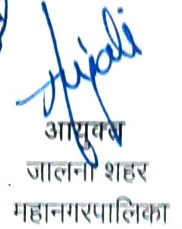 आयुक्त
जालना शहर
महानगरपालिका